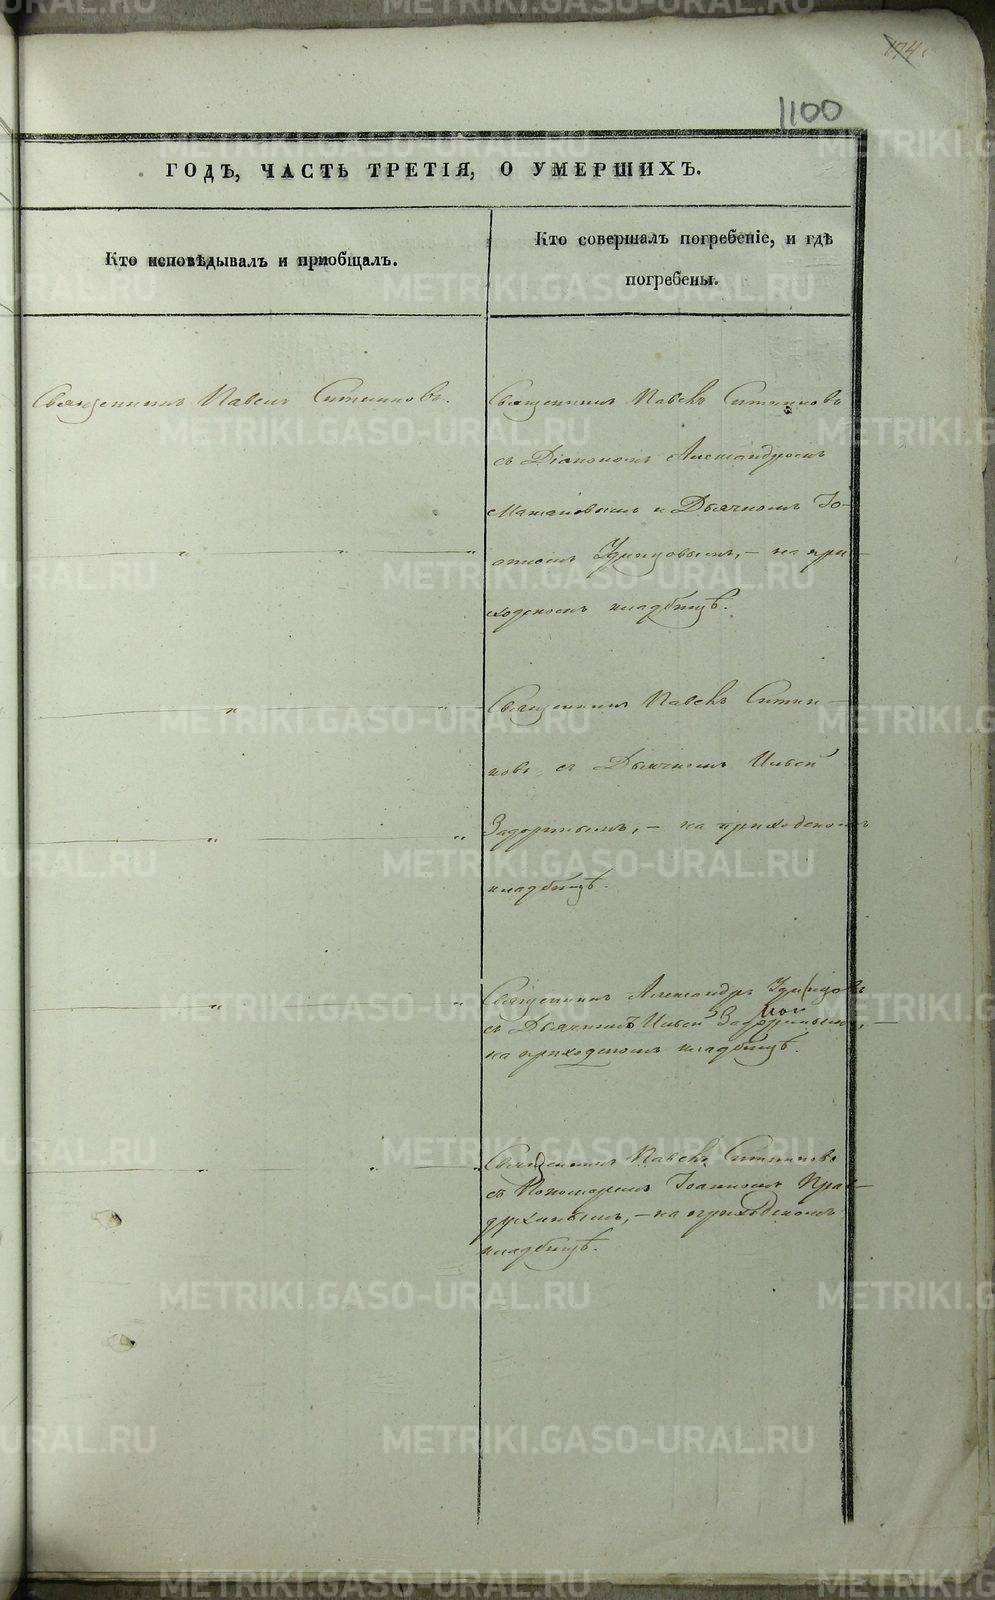 174
1100
ГОДЪ, ЧАСТЬ ТРЕТІЯ, О УМЕРШИХЪ.
Кто исповѣдывалъ и приобщалъ.
Кто совершалъ погребеніе, и гдѣ
погребены.
Священникъ Павелъ Ситниковъ.
Священникъ Павелъ Ситниковъ
съ Діакономъ Александромъ
и Дьячкомъ Іо-
анномъ Удинцовымъ, — на при-
ходскомъ кладбищѣ.
Священникъ Павелъ Ситни-
ковъ съ Дьячкомъ Ильей
Задоринымъ, — на приходскомъ
кладбищѣ.
Священникъ Александръ Удинцовъ
съ Дьячкомъ Ильей Задоринымъ, —
на приходскомъ кладбищѣ.
Священникъ Павелъ Ситниковъ
съ Пономаремъ Іоанномъ
— на приходскомъ
кладбищѣ.
METRIKI.GASO-URAL.RU